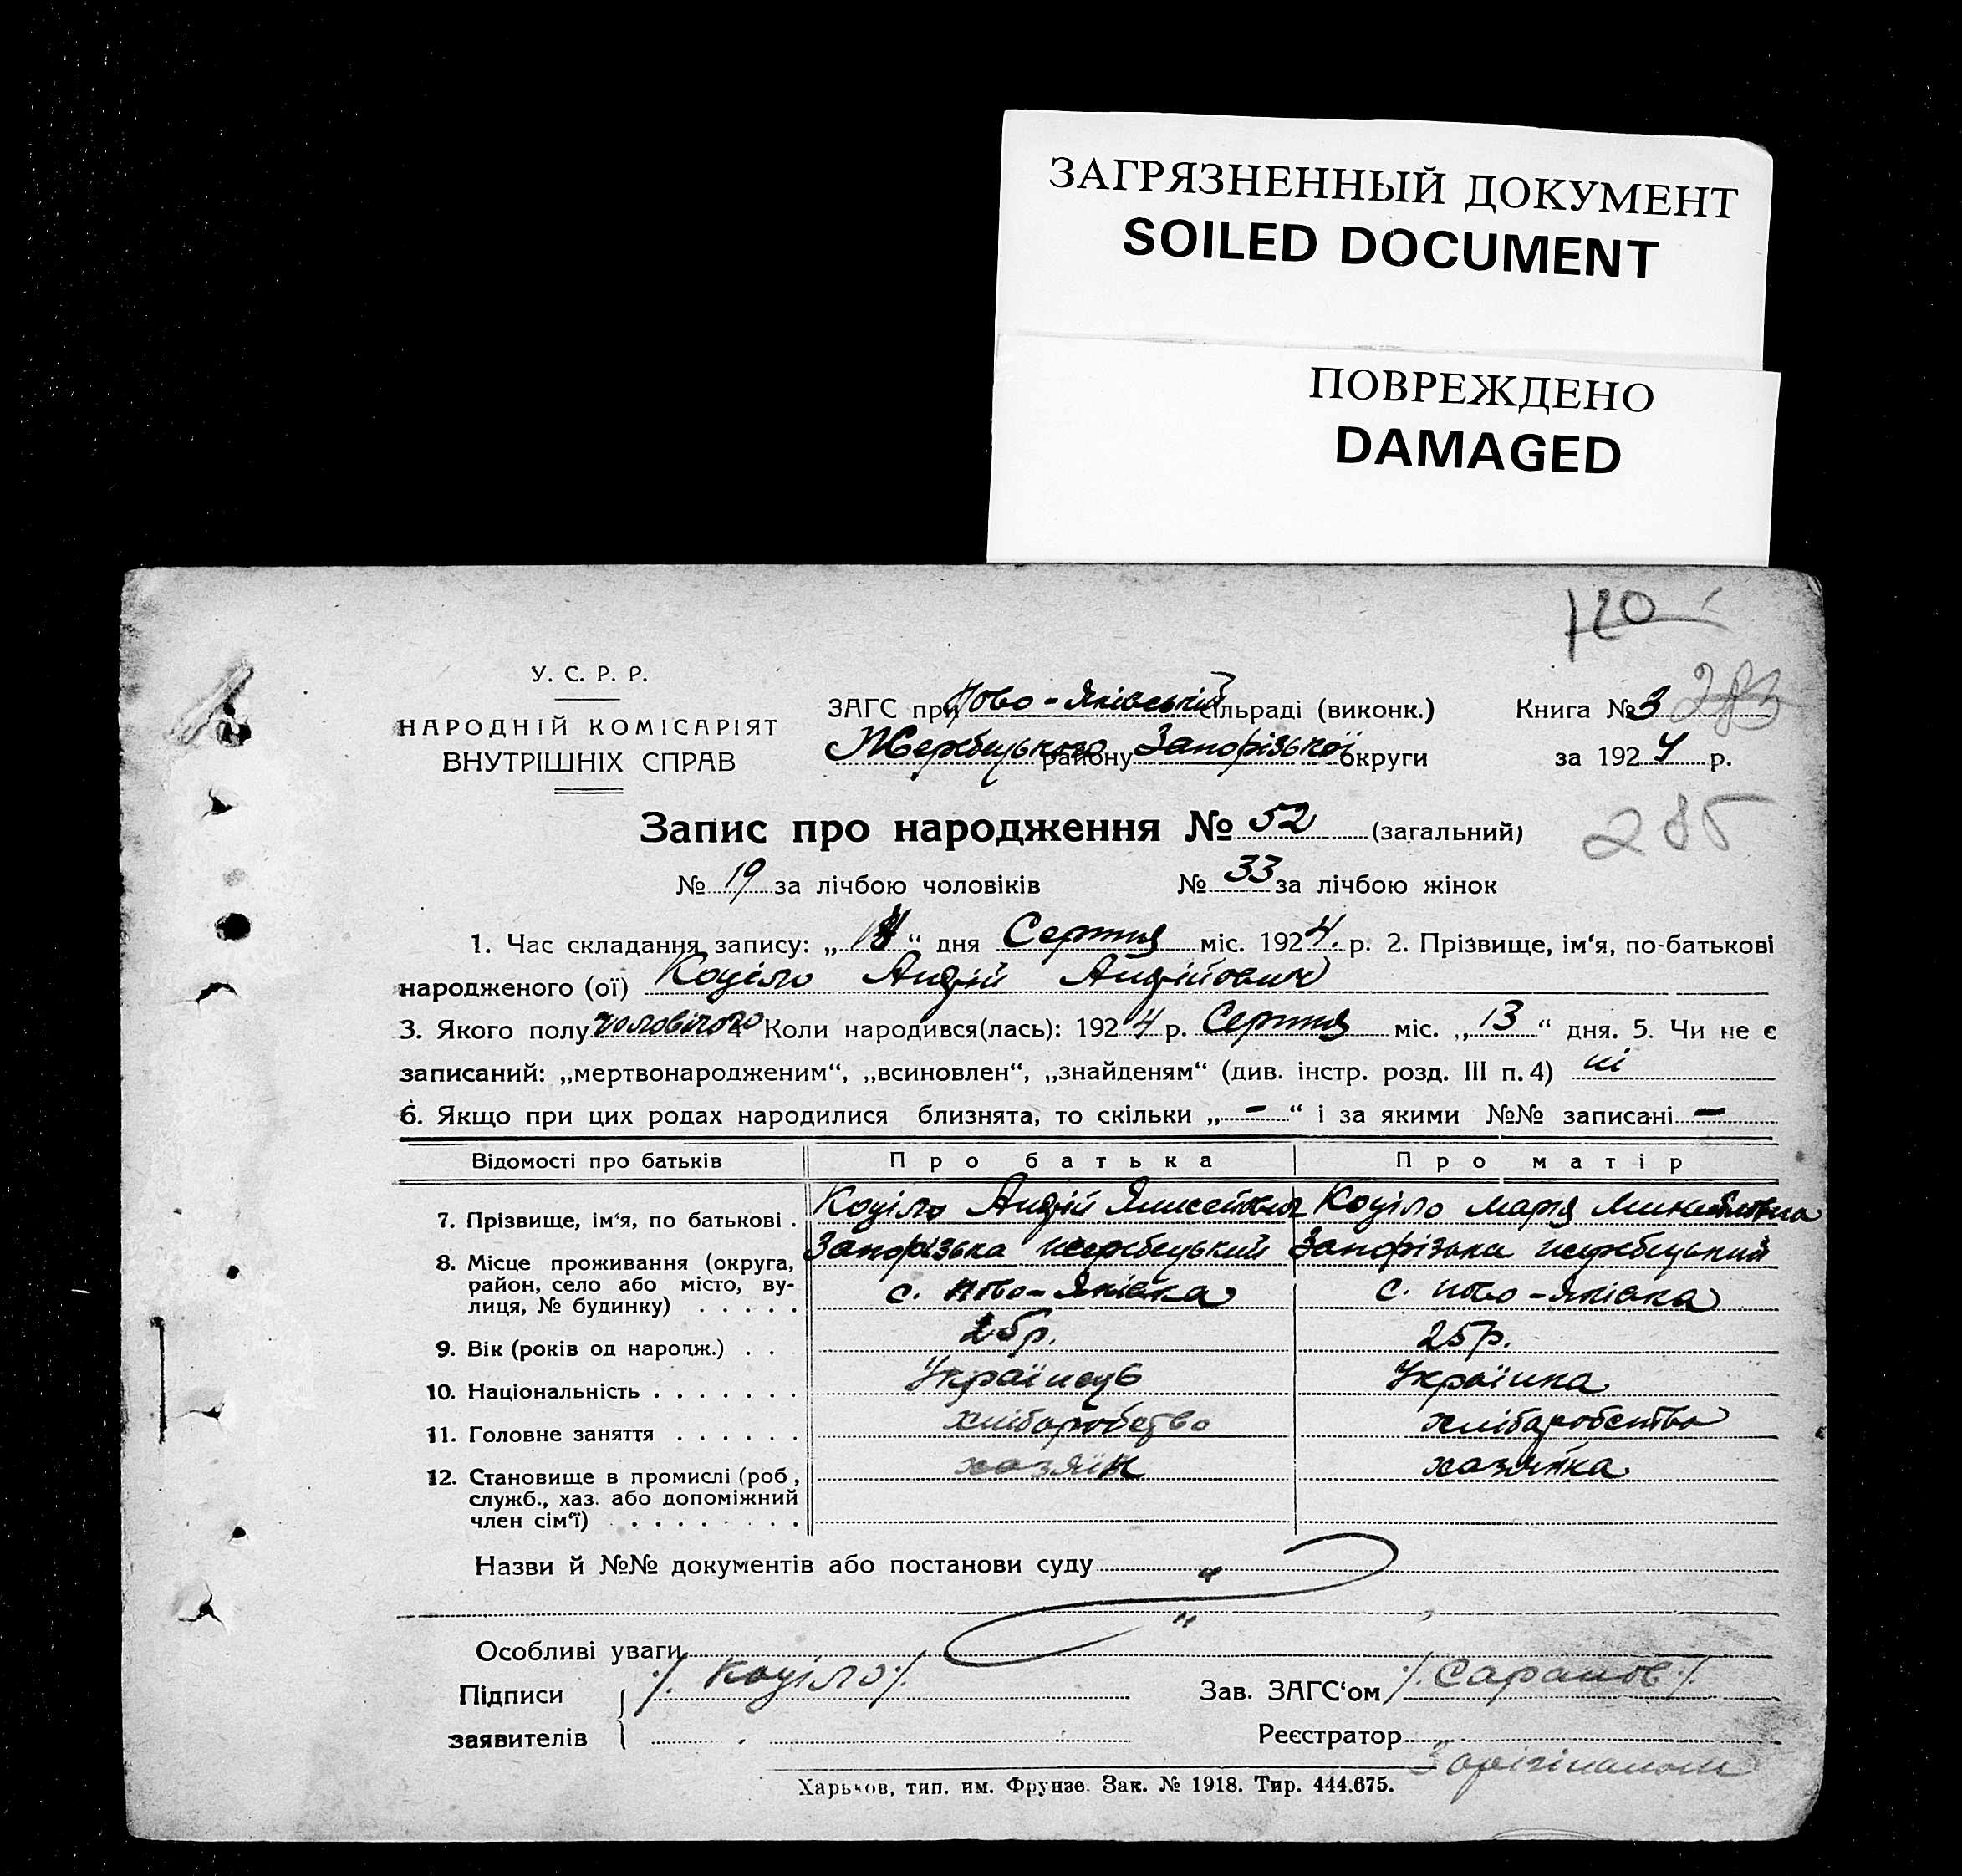 ЗАГРЯЗНЕННЫЙ ДОКУМЕНТ
SOILED DOCUMENT
ПОВРЕЖДЕНО
DAMAGED
120
У. С. Р. Р.
НАРОДНІЙ КОМІСАРІЯТ
ВНУТРІШНІХ СПРАВ
ЗАГС при Ново-Яківській сільраді (виконк.)
Жеребецького району Запорізької округи
Книга № 3 283
за 1924 р.
285
Запис про народження № 52 (загальний)
№ 19 за лічбою чоловіків № 33 за лічбою жінок
1. Час складання запису: „ “ дня Серпня міс. 1924. р. 2. Прізвище, ім‘я, по-батькові
народженого (ої) Коціло Андрій Андрійович
3. Якого полу чоловічого 4 Коли народився(лась): 1924 р. Серпня міс. „13“ дня. 5. Чи не є
записаний: „мертвонародженим“, „всиновлен“, „знайденям“ (див. інстр. розд. III п. 4) ні
6. Якщо при цих родах народилися близнята, то скільки „-“ і за якими №№ записані -
Відомості про батьків Про батька Про матір
7. Прізвище, ім‘я, по батькові . Коціло Андрій Коціло Марія
8. Місце проживання (округа, Запорізька жеребецький Запорізька жеребецький
район, село або місто, ву-
лиця, № будинку) . . . . . с. Ново-Яківка с. Ново-Яківка
9. Вік (років од народж.) . . 25р. 25р.
10. Національність . . . . . . . Українець Українка
11. Головне заняття . . . . . . хліборобство хліборобство
12. Становище в промислі (роб., хазяїн хазяйка
служб., хаз. або допоміжний
член сім‘ї) . . . . . . . .
Назви й №№ документів або постанови суду "
"
Особливі уваги
Підписи /. Коціло ./ Зав. ЗАГС‘ом /. Саранов ./
заявителів Реєстратор
З орігіналом
Харьков, тип. им. Фрунзе. Зак. № 1918. Тир. 444.675.